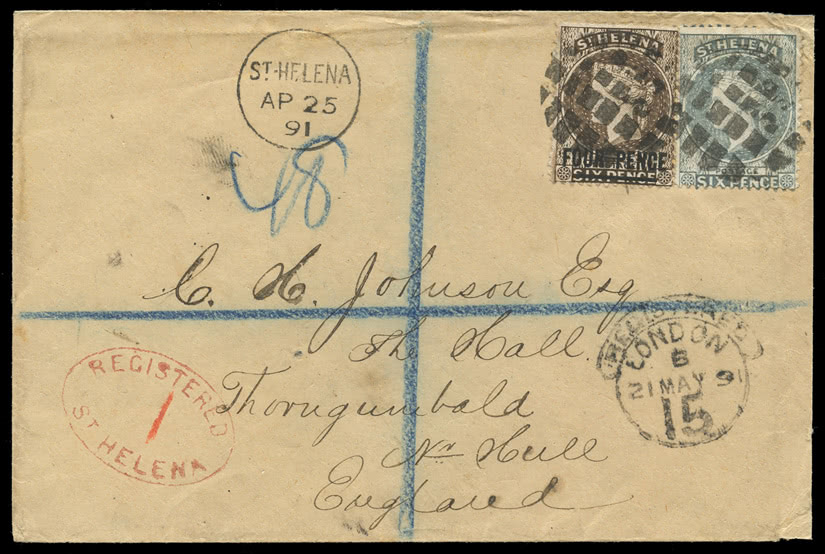 ST. HELENA
FOUR PENCE
SIX PENCE
ST. HELENA
POSTAGE
SIX PENCE
ST. HELENA
AP 25
91
48
C. H. Johnson Esq
The Hall
Thorngumbald
Nr Hull
England
REGISTERED
1
ST HELENA
REGISTERED
LONDON
B
21 MAY 91
15